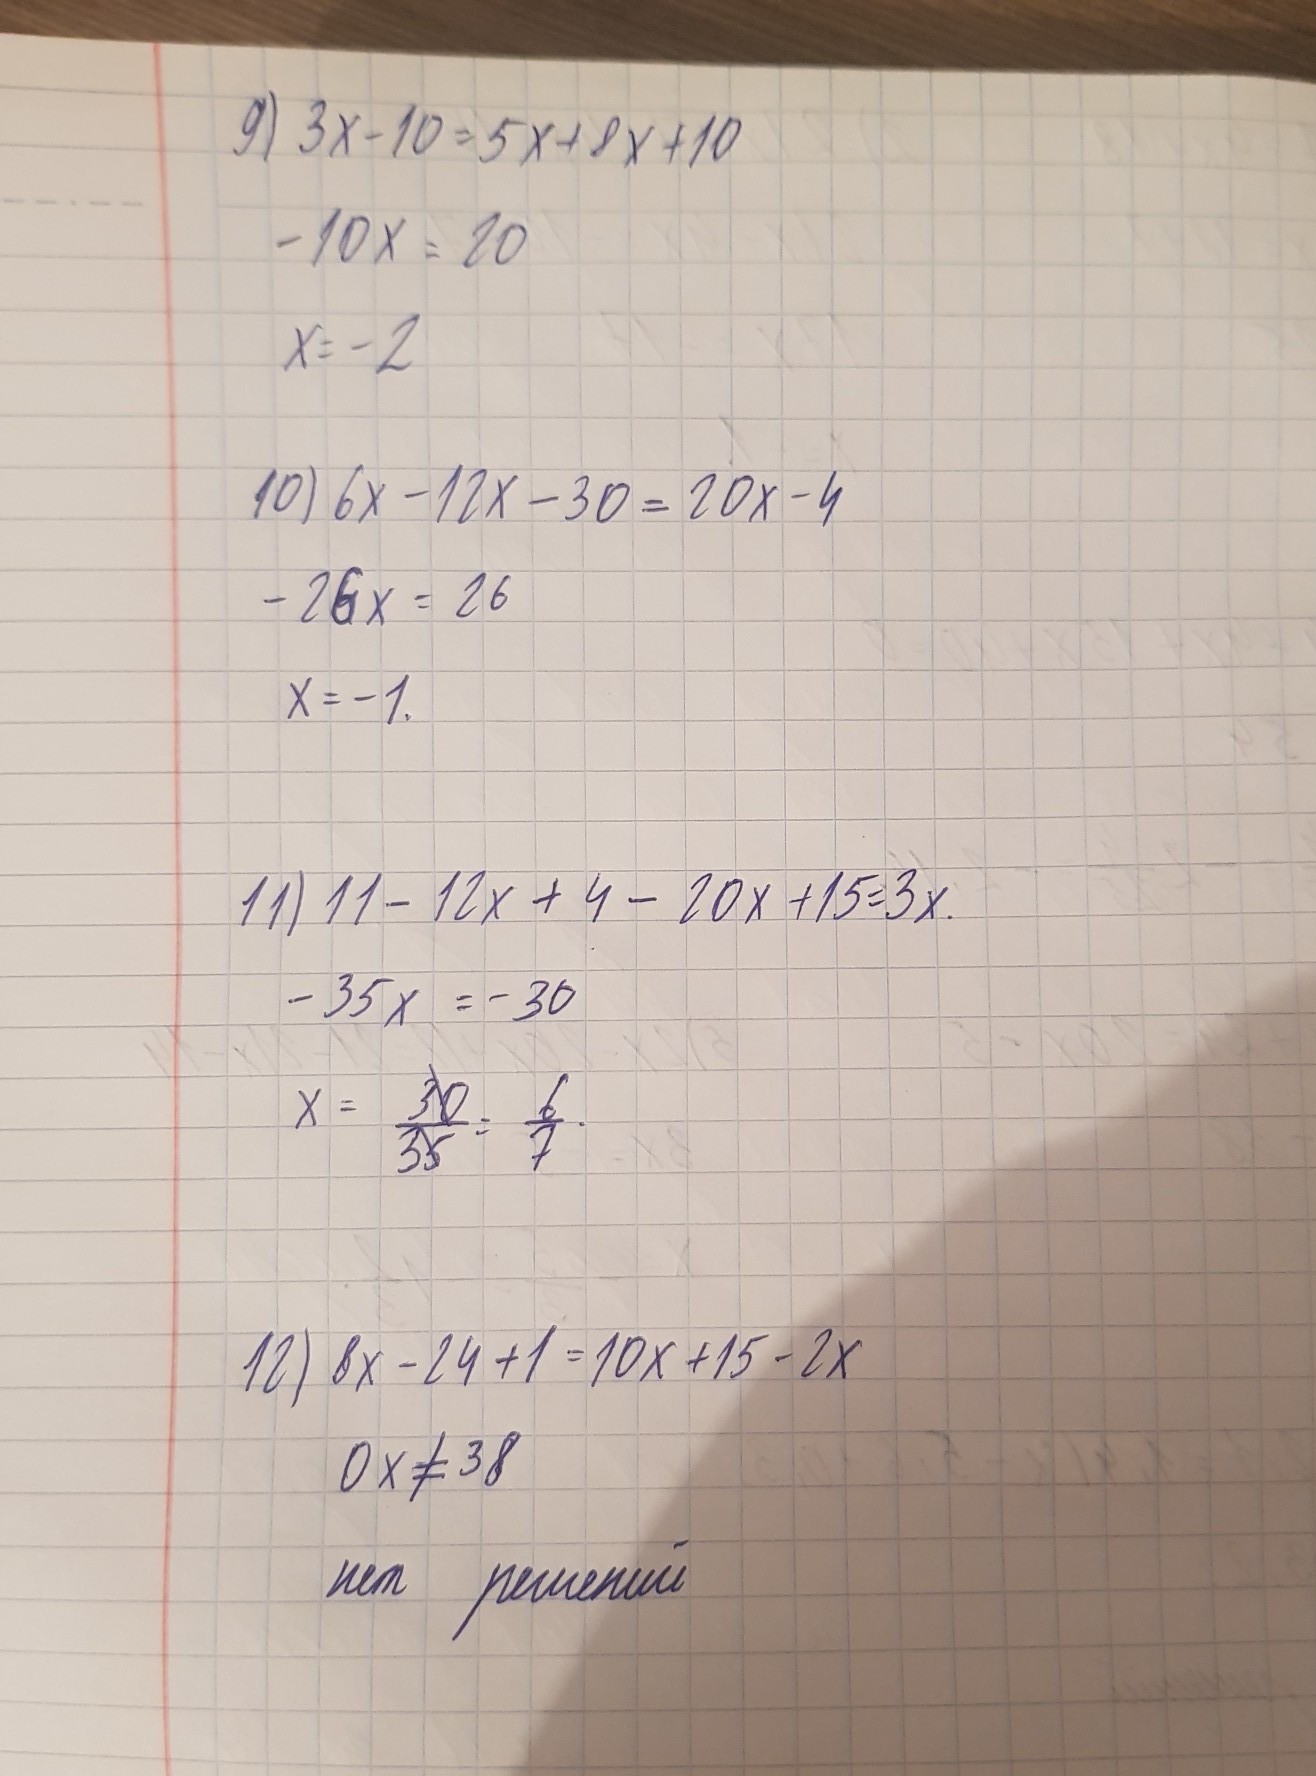 9) 3x-10=5x+8x+10
-10x=20
x=-2
10) 6x-12x-30=20x-4
-26x=26
x=-1.
11) 11-12x+4-20x+15=3x.
-35x=-30
x=30/35=6/7.
12) 8x-24+1=10x+15-2x
0x≠38
нет решений